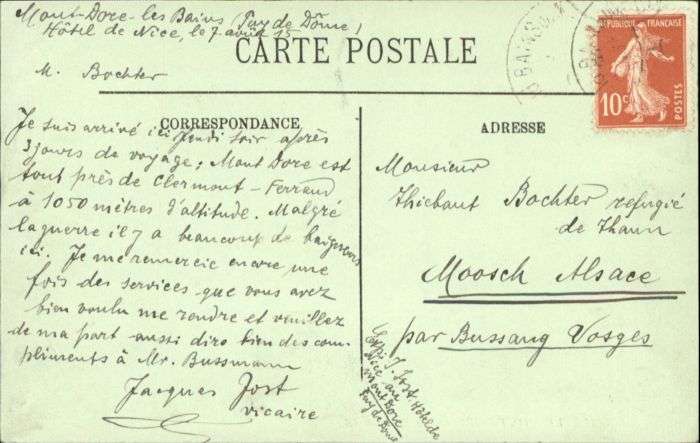 Mont-Dore-les Bains (Puy de Dôme)
Hôtel de Nice, le 7 août 15
CARTE POSTALE
M. Bochter
CORRESPONDANCE
Je suis arrivé ici Jeudi soir après
3 jours de voyage; Mont Dore est
tout près de Clermont-Ferrand
à 1050 mètres d'altitude. Malgré
la guerre il y a beaucoup de baigneurs
ici. Je me remercie encore une
fois des services que vous avez
bien voulu me rendre et veuillez
de ma part aussi dire bien des com-
pliments à Mr. Bussmann
Jacques Jost
vicaire
Expéd. J. Jost, Hôtel de
Nice au
Mont Dore
Puy de Dôme
REPUBLIQUE FRANÇAISE
10c
POSTES
ADRESSE
Monsieur
Thiebaut Bochter refugié
de Thann
Moosch Alsace
par Bussang Vosges